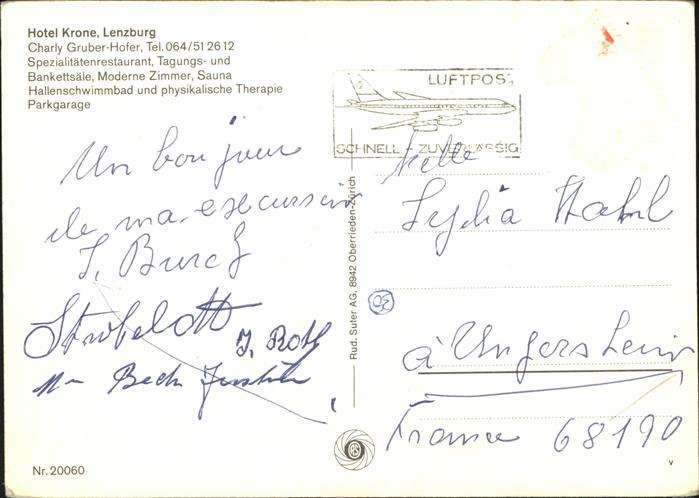 Hotel Krone, Lenzburg
Charly Gruber-Hofer, Tel. 064/51 26 12
Spezialitätenrestaurant, Tagungs- und
Bankettsäle, Moderne Zimmer, Sauna
Hallenschwimmbad und physikalische Therapie
Parkgarage
LUFTPOST
SCHNELL - ZUVERLÄSSIG
Un bonjour
de ma excursion
J. Burch
J. Roth
Rud. Suter AG, 8942 Oberrieden-Zürich
Melle
Lydia Stahl
à Ungersheim
France 68190
Nr. 20060
v